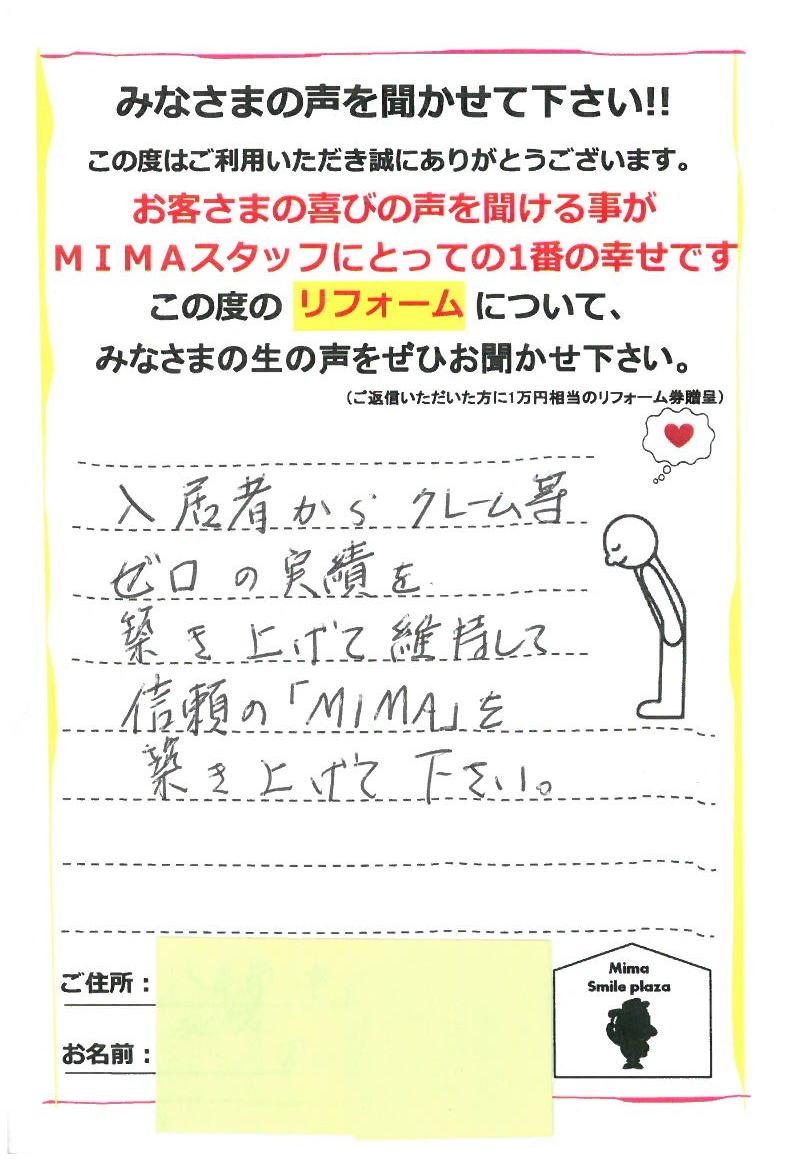 みなさまの声を聞かせて下さい!!
この度はご利用いただき誠にありがとうございます。
お客さまの喜びの声を聞ける事が
ＭＩＭＡスタッフにとっての1番の幸せです
この度の リフォーム について、
みなさまの生の声をぜひお聞かせ下さい。
（ご返信いただいた方に1万円相当のリフォーム券贈呈）
入居者から クレーム等
ゼロの実績を
築き上げて維持して
信頼の「MIMA」を
築き上げて下さい。
ご住所：
お名前：
Mima
Smile plaza